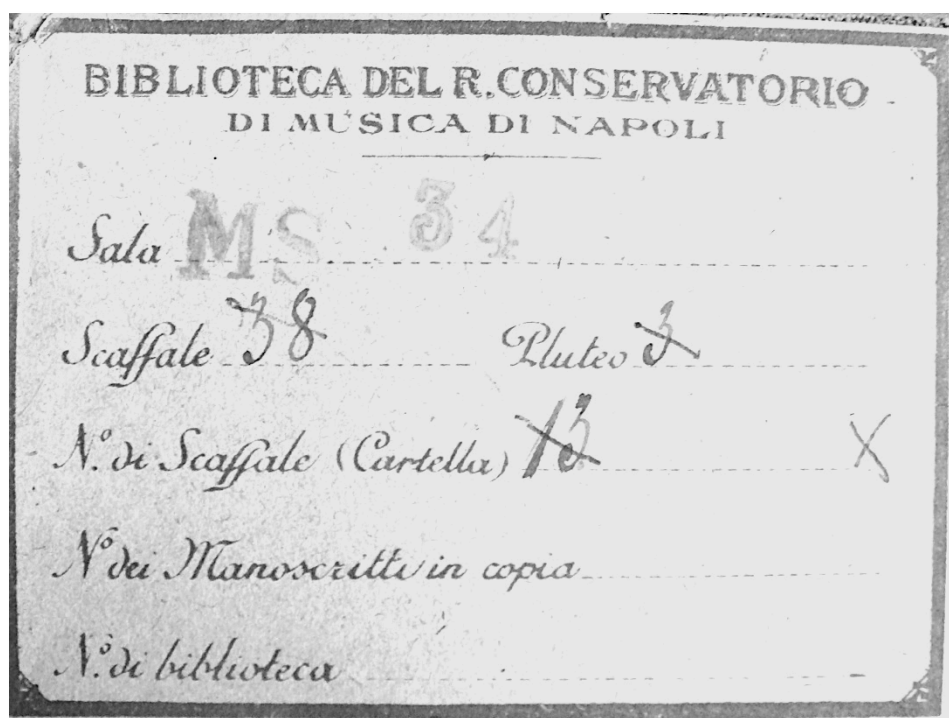 BIBLIOTECA DEL R. CONSERVATORIO
DI MUSICA DI NAPOLI
Sala MS 34
Scaffale 38 Pluteo 3
N.o di Scaffale (Cartella) 13 X
No dei Manoscritti in copia
N.o di biblioteca